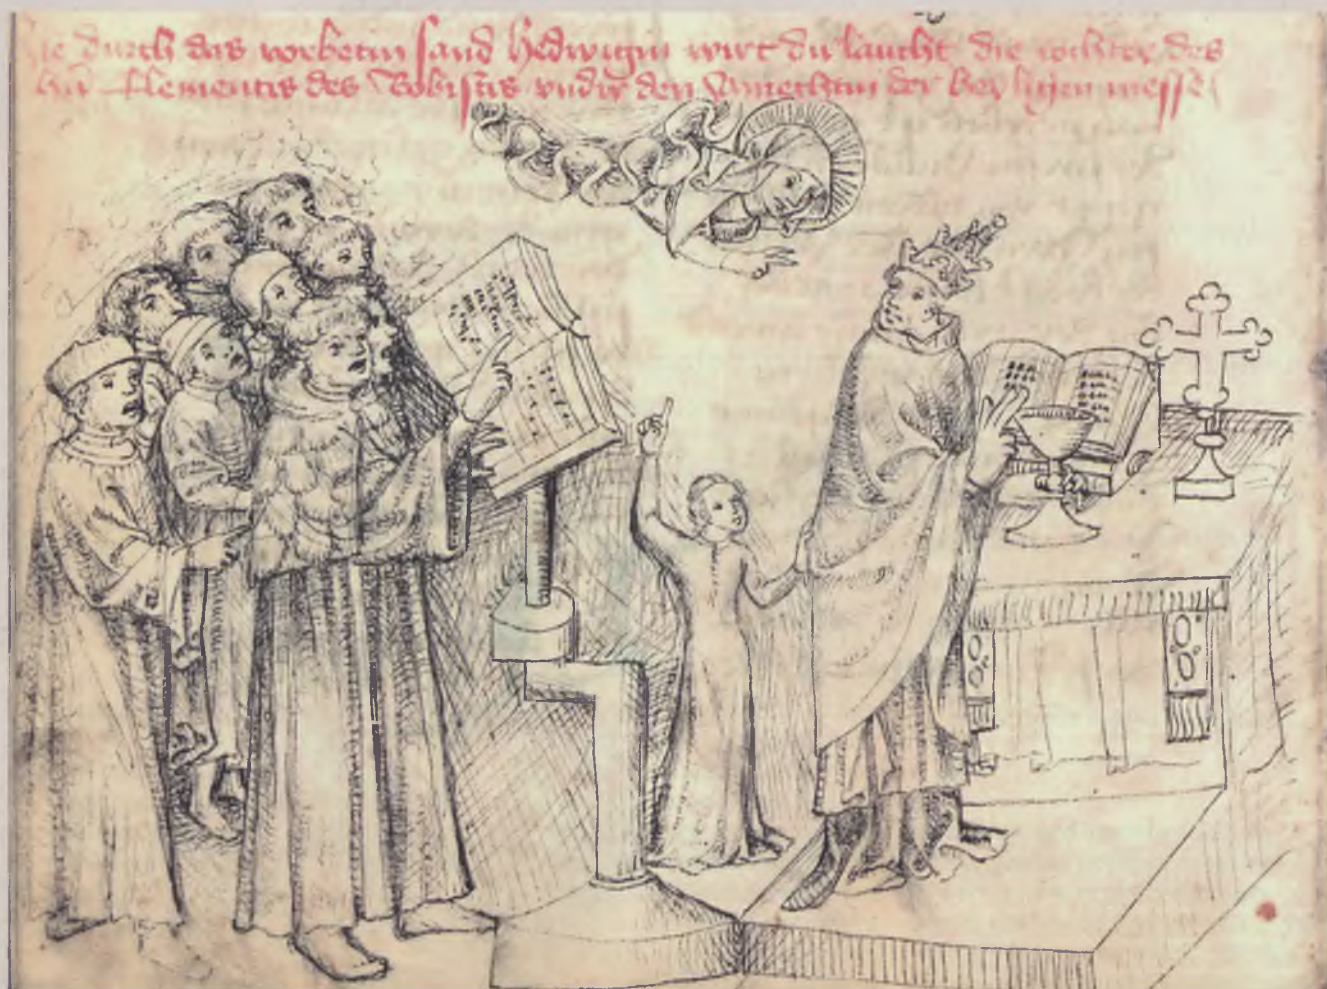 durch das vorbetin sand Hedwigin wirt du laucht die tochter des
Clementis des Bobistis vndir den Amechtin der heyligen messe